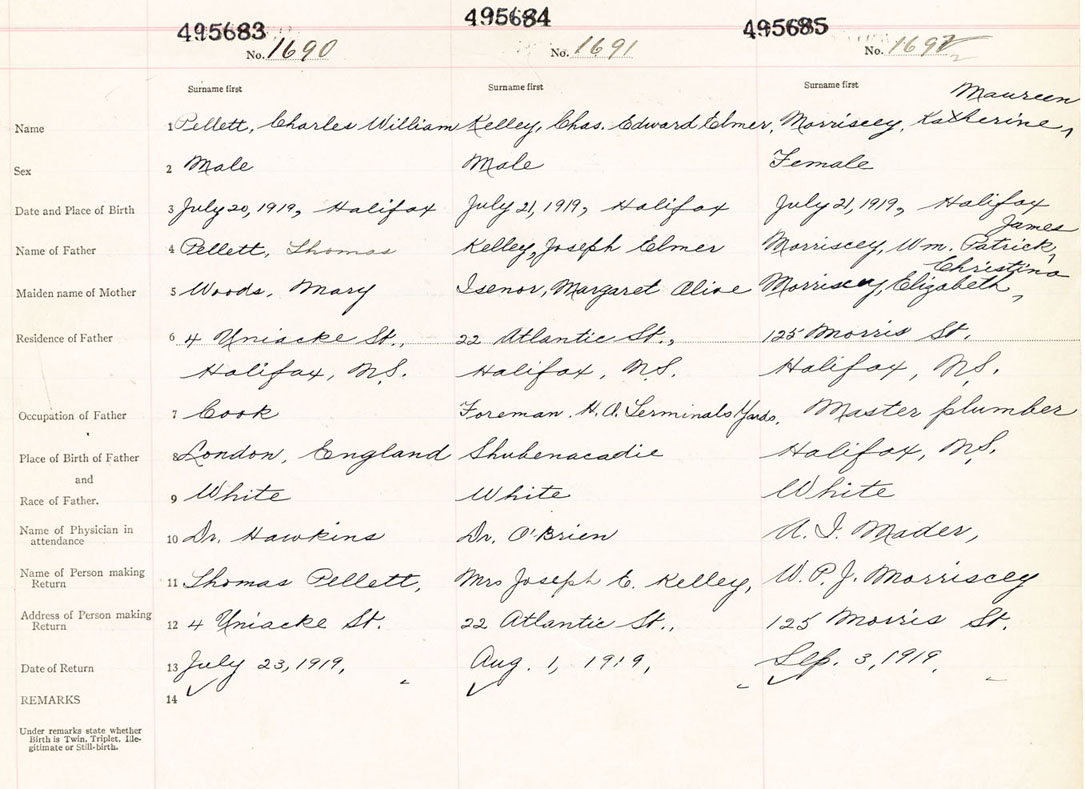 495683 495684 495685
No. 1690 No. 1691 No. 1692
Surname first Surname first Surname first
Maureen
Name 1 Pellett, Charles William Kelley, Chas. Edward Elmer, Morriscey, Katherine,
Sex 2 Male Male Female
Date and Place of Birth 3 July 20, 1919, Halifax July 21, 1919, Halifax July 21, 1919, Halifax
James
Name of Father 4 Pellett, Thomas Kelley, Joseph Elmer Morriscey, Wm. Patrick,
Christina
Maiden name of Mother 5 Woods, Mary Isenor, Margaret Olive Morriscey, Elizabeth,
Residence of Father 6 4 Uniacke St., 22 Atlantic St., 125 Morris St.
Halifax, N.S. Halifax, N.S. Halifax, N.S.
Occupation of Father 7 Cook Foreman. H.O. Terminals Yards, Master plumber
Place of Birth of Father 8 London, England Shubenacadie Halifax, N.S.
and
Race of Father. 9 White White White
Name of Physician in
attendance 10 Dr. Hawkins Dr. O'Brien A. I. Mader,
Name of Person making
Return 11 Thomas Pellett, Mrs Joseph E. Kelley, W. P. J. Morriscey
Address of Person making
Return 12 4 Uniacke St. 22 Atlantic St., 125 Morris St.
Date of Return 13 July 23, 1919, Aug. 1, 1919, Sep. 3, 1919,
REMARKS 14
Under remarks state whether
Birth is Twin, Triplet, Ille-
gitimate or Still-birth.